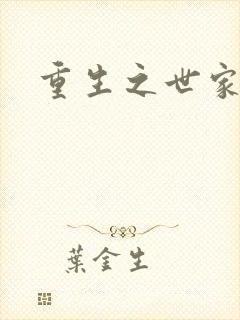 重生之世家
葉金生